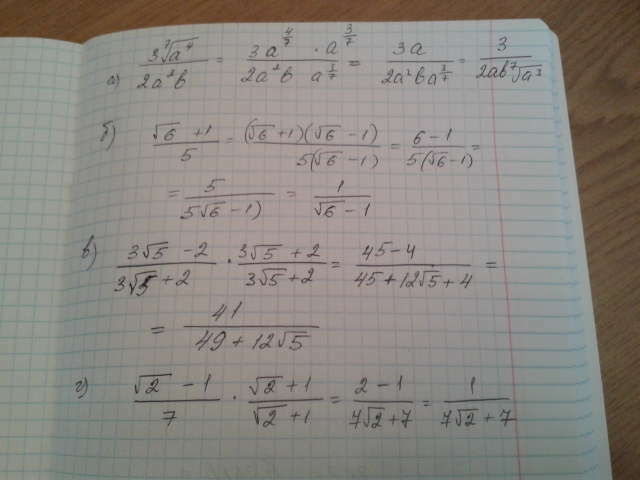 а) 3⁷√a⁴ / 2a²b = 3a^(4/7) · a^(3/7) / 2a²b a^(3/7) = 3a / 2a²ba^(3/7) = 3 / 2ab⁷√a³
б) √6 +1 / 5 = (√6 +1)(√6 −1) / 5(√6 −1) = 6−1 / 5(√6 −1) =
= 5 / 5√6 −1) = 1 / √6 −1
в) 3√5 −2 / 3√5 +2 · 3√5 +2 / 3√5 +2 = 45−4 / 45+12√5 +4 =
= 41 / 49+12√5
г) √2 −1 / 7 · √2 +1 / √2 +1 = 2−1 / 7√2 +7 = 1 / 7√2 +7